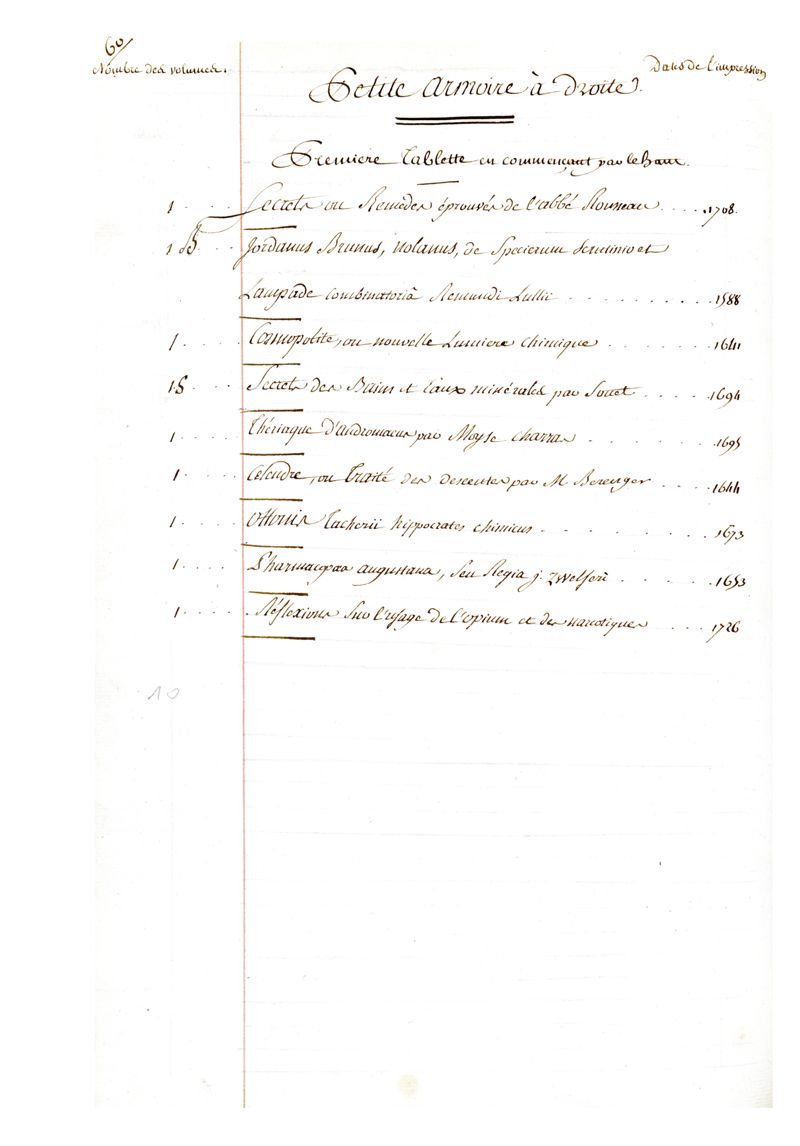 60/
Nombre des volumes. Dates de l'impression
Petite Armoire à Droite.
Premiere Tablette en commençant par le haut.
1 . . . . Secrets ou Remèdes éprouvés de l'abbé Rousseau . . . . 1708.
1 B . . . Jordanus Brunus, nolanus, de Specierum Scrutinio et
Lampade combinatoriâ Remundi Lullii . . . . . . . . 1588
1 . . . . Cosmopolite, ou nouvelle Lumiere chimique . . . . . . 1641
1 B . . . Secrets des Bains et Eaux minérales par . . . . . 1694
1 . . . . Thériaque d'andromacus par Moyse charras . . . . . . . 1695
1 . . . . ou Traité des descentes par M. Berenger . . . . 1644
1 . . . . Ottonis Tachenii hippocrates chimicus . . . . . . . . 1673
1 . . . . Pharmacopœa augustana, seu Regia j. zwelferi . . . . . 1653
1 . . . . Réflexions Sur l'usage de l'opium et des narcotiques . . . 1726
10